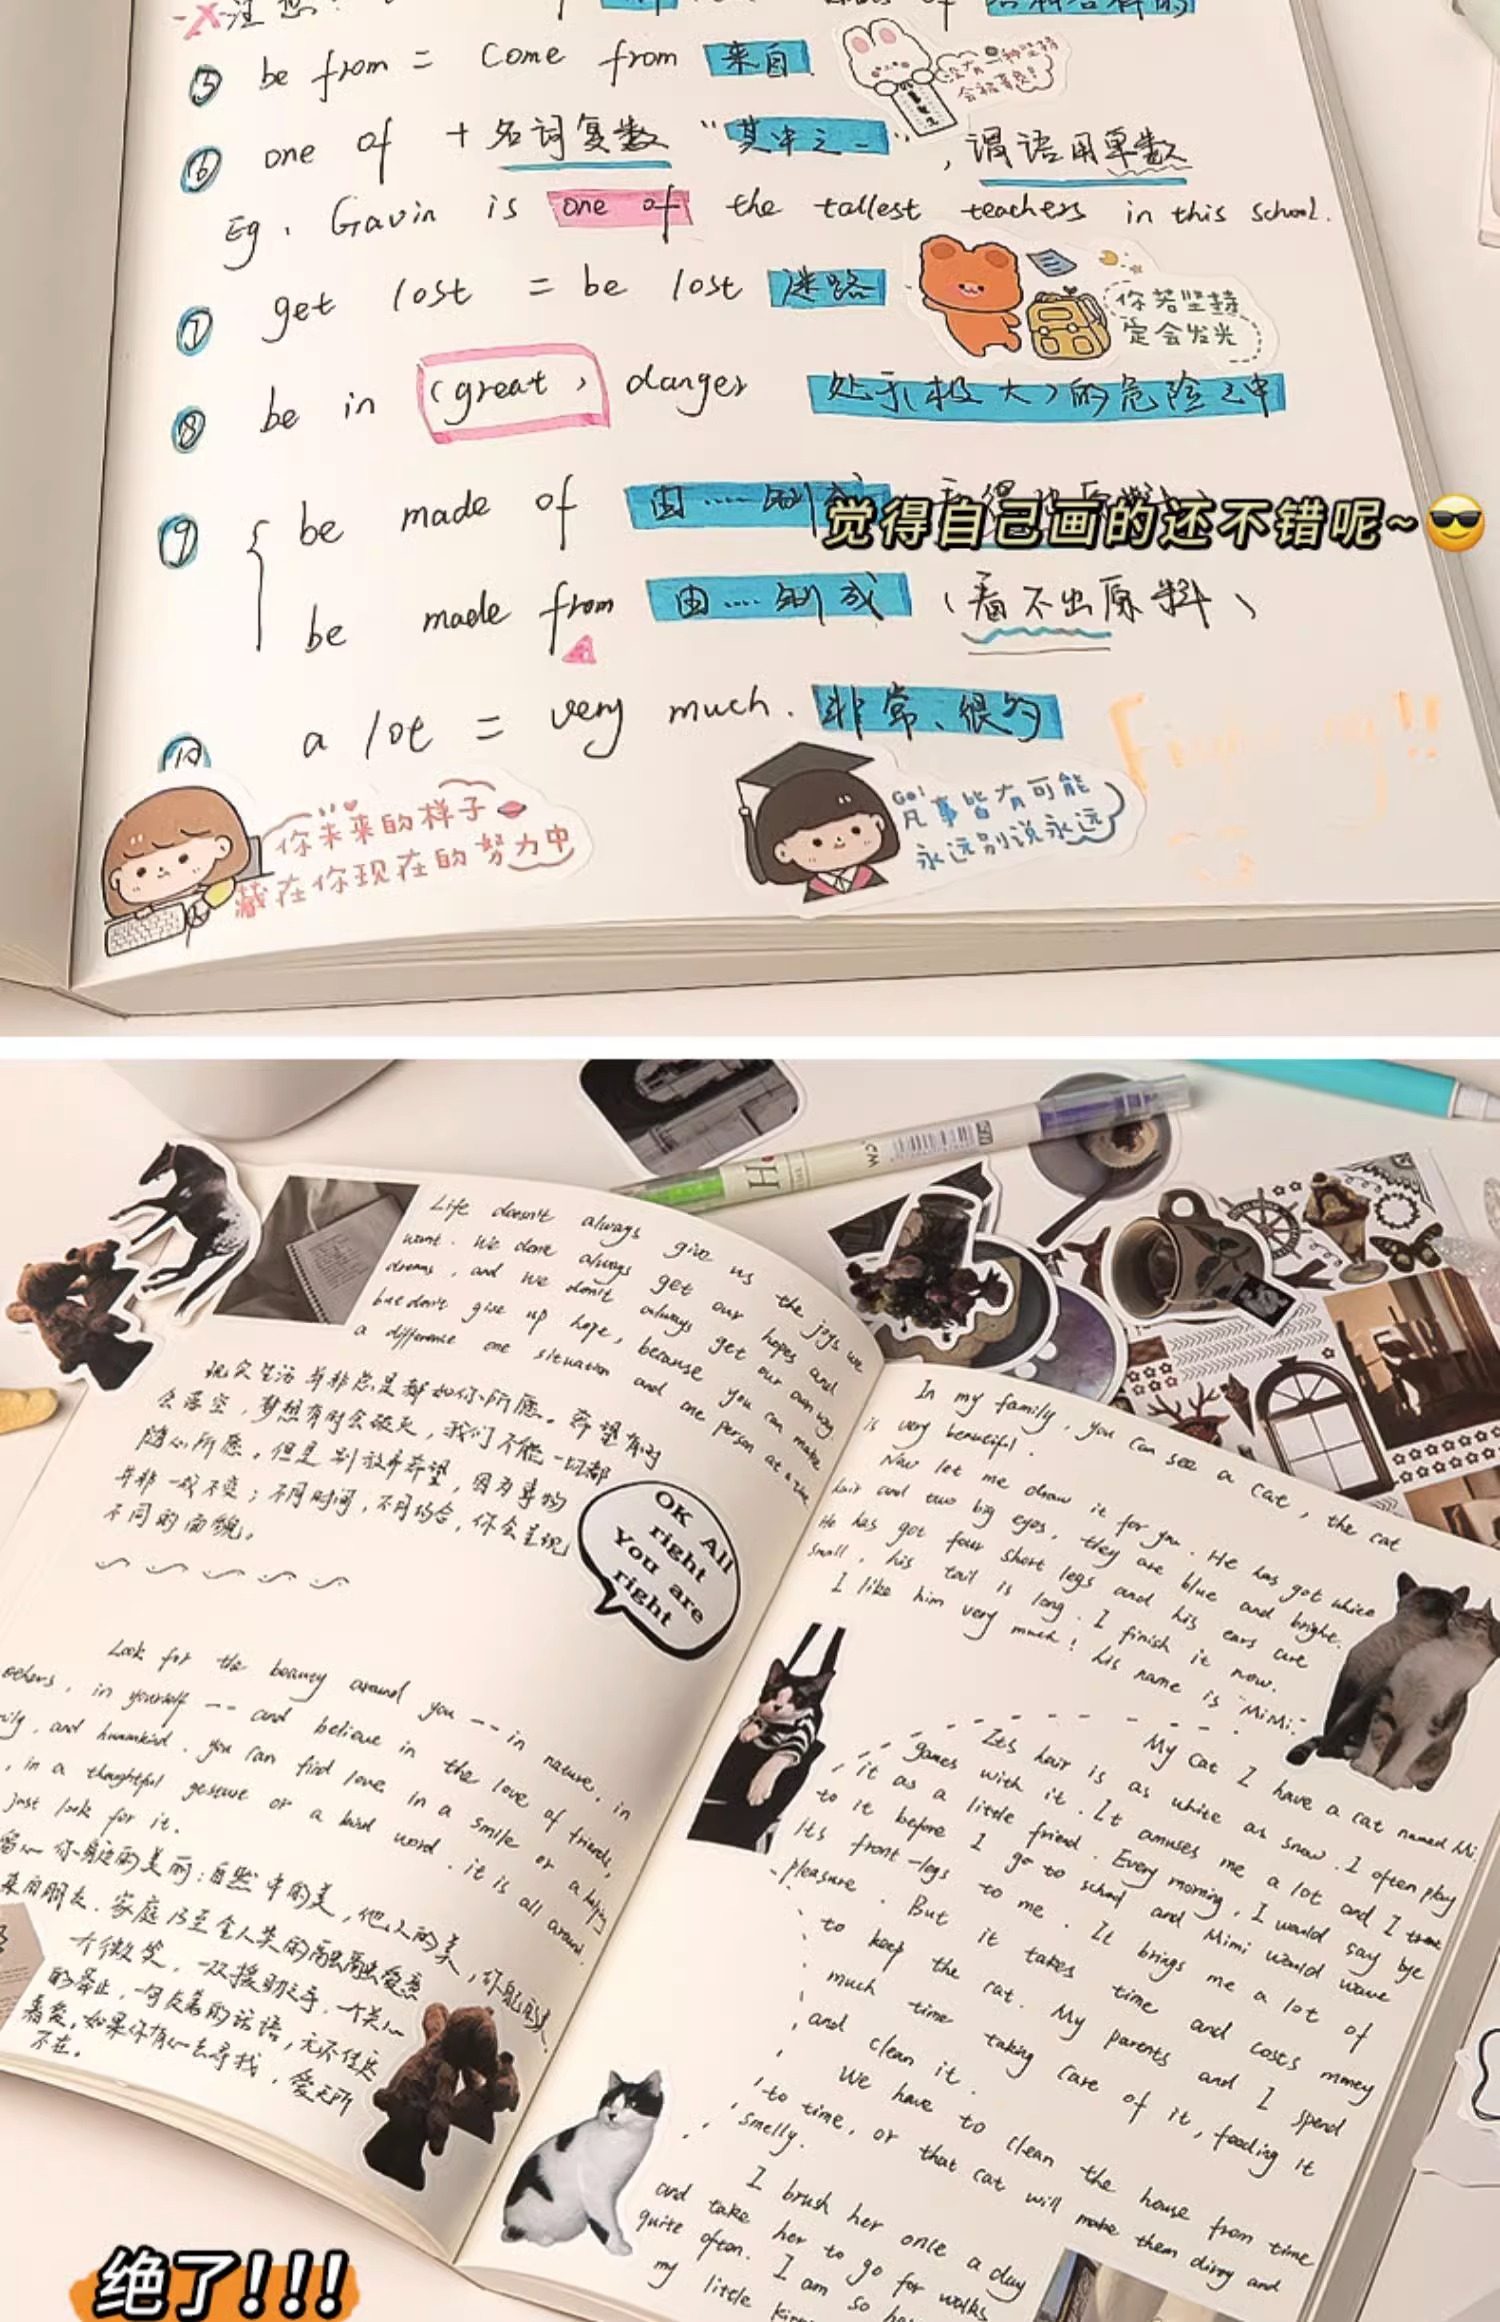 注意:
⑤ be from = Come from 来自
没有一种坚持
会被辜负!
⑥ one of + 名词复数 "其中之一", 谓语用单数
Eg. Gavin is one of the tallest teachers in this school.
⑦ get lost = be lost 迷路
你若坚持
定会发光
⑧ be in (great) danger 处于(极大)的危险之中
⑨ { be made of 由……制成
觉得自己画的还不错呢~
be made from 由……制成 (看不出原料)
⑩ a lot = very much. 非常、很多
你未来的样子
藏在你现在的努力中
Go!
凡事皆有可能
永远别说永远
Life doesn't always give us the joys we
want. We done always get our hopes and
dreams, and we don't always get our own way.
but don't give up hope, because you can make
a difference one situation and one person at a time
现实生活并非总是都如你所愿。希望有时
会落空,梦想有时会破灭,我们不能一切都
随心所愿。但是别放弃希望,因为事物
并非一成不变;不同时间,不同场合,你会呈现
不同的面貌。
OK All
right
You are
right
Look for the beauty around you -- in nature, in
others, in yourself -- and believe in the love of friends,
and humankind. you can find love in a smile or a helping
, in a thoughtful gesture or a kind word. it is all around.
just look for it.
留心你身边的美丽:自然中的美,他人的美,你自
来自朋友、家庭乃至全人类的融融爱意
个微笑,一双援助之手,一个关心
的举止,一句友善的话语,无不传达
着爱。如果你有心去寻找,爱无所
不在。
In my family, you can see a cat, the cat
is very beautiful.
Now let me draw it for you. He has got white
hair and two big eyes, they are blue and bright.
He has got four short legs and his ears are
small, his tail is long. I finish it now.
I like him very much! his name is "MiMi."
My Cat I have a cat named Mi
Its hair is as white as snow. I often play
games with it. It amuses me a lot and I treat
it as a little friend. Every morning, I would say bye
to it before I go to school and Mimi would wave
its front-legs to me. It brings me a lot of
pleasure. But it takes time and costs money
to keep the cat. My parents and I spend
much time taking care of it, feeding it
and clean it.
We have to clean the house from time
to time, or that cat will make them dirty and
smelly.
I brush her once a day
and take her to go for walks
quite often. I am so
my little
绝了!!!